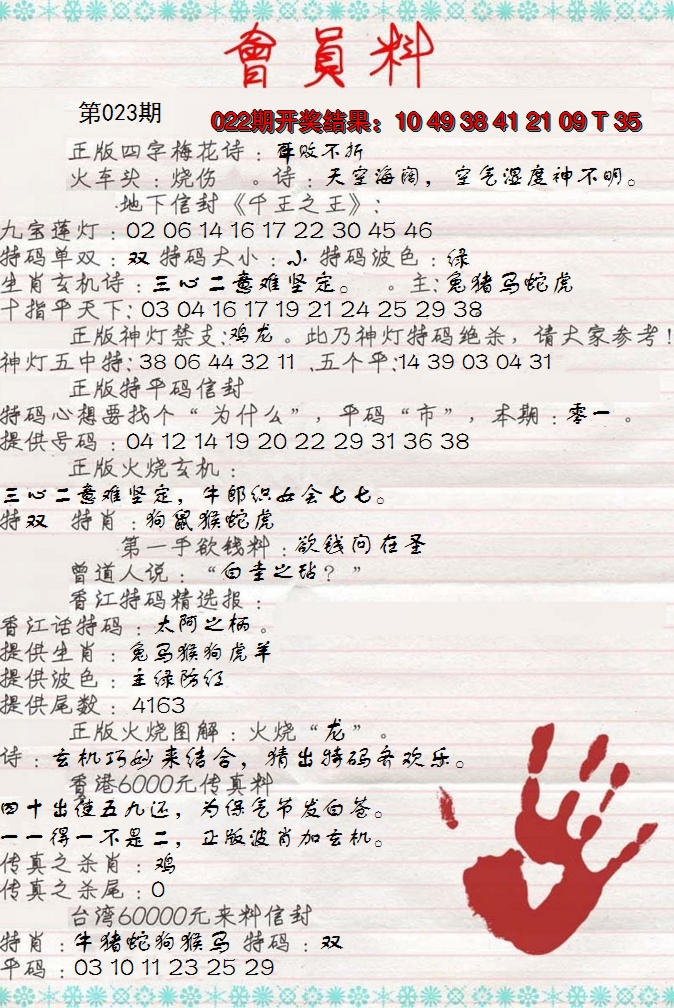 會員料
第023期
022期开奖结果：10 49 38 41 21 09 T 35
正版四字梅花诗：再败不折
火车头：烧伤 。诗：天空海阔，空气湿度神不明。
地下信封《千王之王》：
九宝莲灯：02 06 14 16 17 22 30 45 46
特码单双：双 特码大小：小 特码波色：绿
生肖玄机诗：三心二意难坚定。 。主：兔猪马蛇虎
十指平天下：03 04 16 17 19 21 24 25 29 38
正版神灯禁支：鸡龙。此乃神灯特码绝杀，请大家参考！
神灯五中特：38 06 44 32 11 、五个平：14 39 03 04 31
正版特平码信封
特码心想要找个“为什么”，平码“市”，本期：零一 。
提供号码：04 12 14 19 20 22 29 31 36 38
正版火烧玄机：
三心二意难坚定，牛郎织女会七七。
特双 特肖：狗鼠猴蛇虎
第一手欲钱料：欲钱问在圣
曾道人说：“白圭之玷？”
香江特码精选报：
香江话特码：太阿之柄。
提供生肖：兔马猴狗虎羊
提供波色：主绿防红
提供尾数：4163
正版火烧图解：火烧“龙”。
诗：玄机巧妙来结合，猜出特码齐欢乐。
香港6000元传真料
四十出使五九还，为保气节发白苍。
一一得一不是二，正版波肖加玄机。
传真之杀肖：鸡
传真之杀尾：0
台湾60000元来料信封
特肖：牛猪蛇狗猴马 特码：双
平码：03 10 11 23 25 29